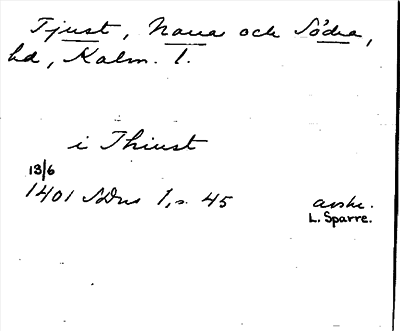 Tjust, Norra och Södra,
hd, Kalm. l.
i Thiust
13/6
1401 SDns 1, s. 45 avskr.
L. Sparre.